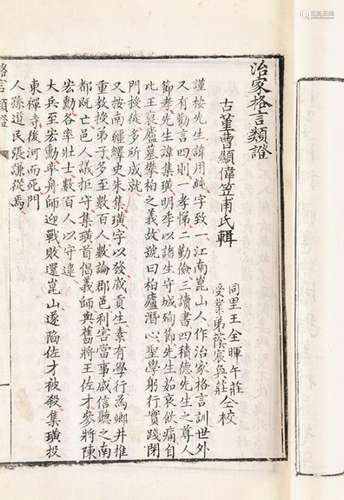 治家格言類證
古董曹顯偉笠甫氏輯
同里王全暉午莊
受業弟蔭宸奐莊
仝校
謹按先生諱用純字致一江南崑山人作治家格言訓世外
又有勸言四則一孝悌二勤儉三讀書四積德先生之尊人
節孝先生諱集璜明季以諸生守城殉節先生茹哀飲痛自
比王裒廬墓攀柏之義故號曰柏廬潛心聖學躬行實踐閉
門授徒多所成就
又按南疆繹史朱集璜字以發歲貢生素有學行為鄉井推
重教授弟子多至數百人數論郡邑利害當事咸信聽之南
都既亡邑人議拒守集璜首倡義師與舊將王佐才參將陳
宏勳各率壯士數百人以守逮
大兵至宏勳率舟師迎戰敗還崑山遂陷佐才被殺集璜投
東禪寺後河而死門
人孫道民張謙從焉
格言類證